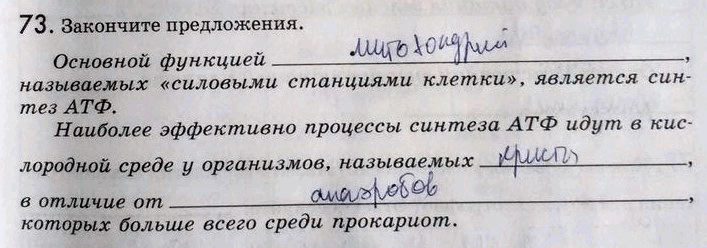 73. Закончите предложения.
Основной функцией митохондрий,
называемых «силовыми станциями клетки», является син-
тез АТФ.
Наиболее эффективно процессы синтеза АТФ идут в кис-
лородной среде у организмов, называемых кристы,
в отличие от анаэробов,
которых больше всего среди прокариот.